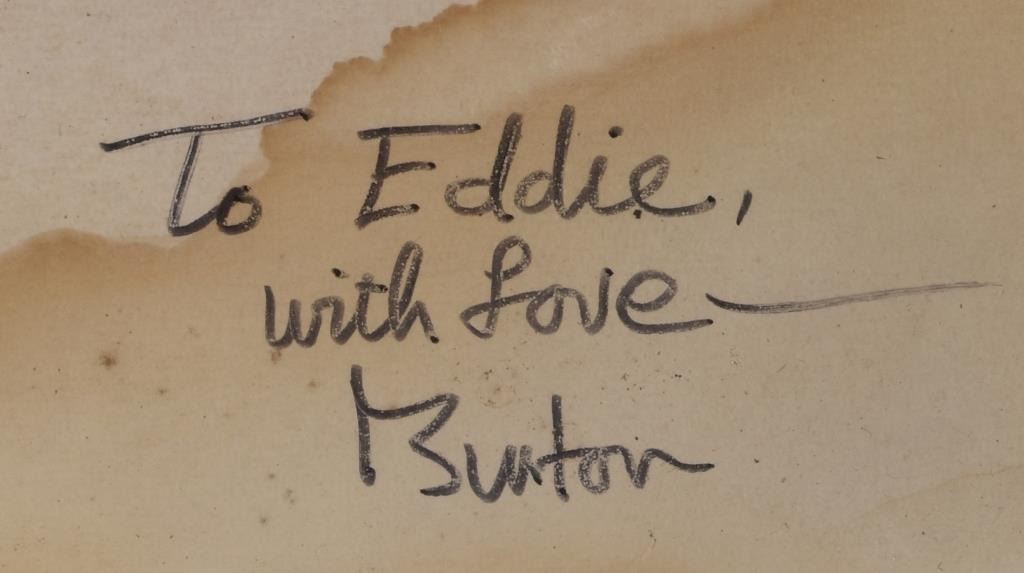 To Eddie,
with Love—
Burton